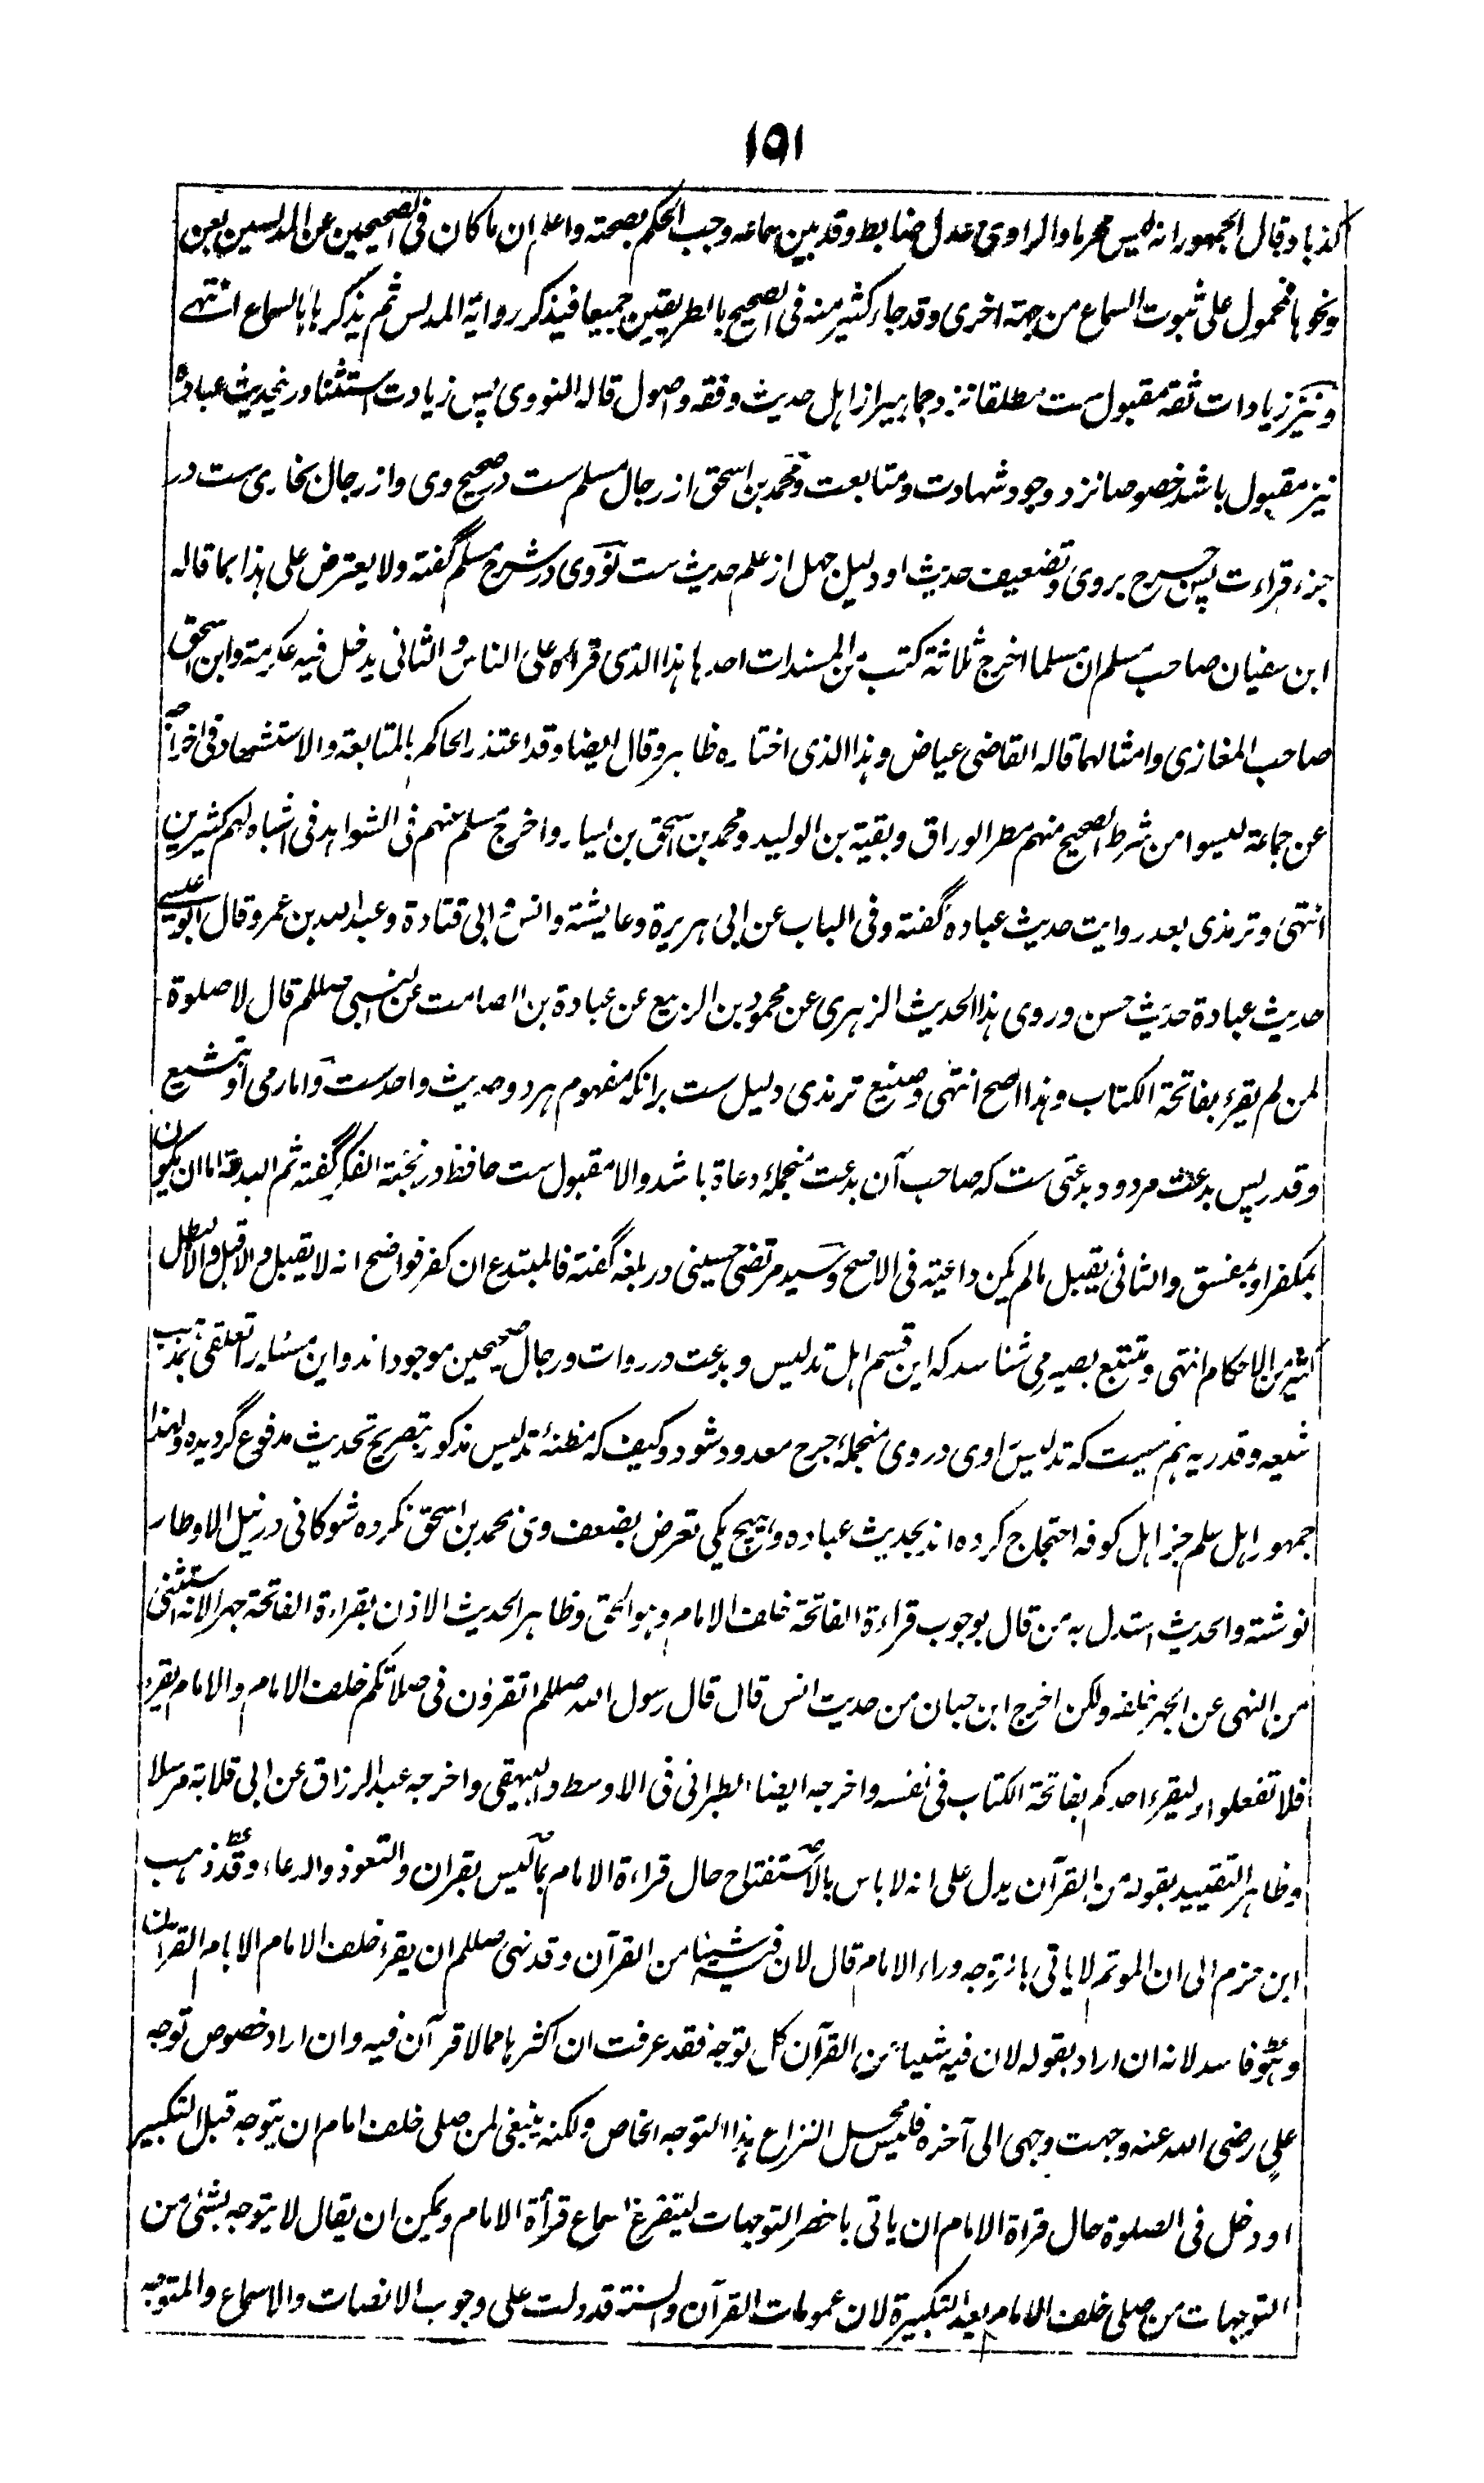 ١٥١
کذبا وقال الجمهور انه لیس محرما والراوی عدل ضابط وقد بین سماعه وجب الحکم بصحته واعلم ان ما کان فی الصحیحین عن المدلسین بعن
ونحوها فمحمول علی ثبوت السماع من جهة اخری وقد جاء کثیر منه فی الصحیح بالطریقین جمیعا فیذکر روایة المدلس ثم یذکرها بالسماع انتهے
ونیز زیادات ثقه مقبول ست مطلقا نزد جماهیر از اهل حدیث وفقه واصول قاله النووی پس زیادت استثنا در نحدیث عباده
نیز مقبول باشد خصوصا نزد وجود شهادت ومتابعت ومحمد بن اسحق از رجال مسلم ست در صحیح وی واز رجال بخاری ست در
جزء قراءت پس جرح بروی وتضعیف حدیث او دلیل جهل از علم حدیث ست نووی در شرح مسلم گفته ولا یعترض علی هذا بما قاله
ابن سفیان صاحب مسلم ان مسلما اخرج ثلاثة کتب من المسندات احدها هذا الذی قراه علی الناس والثانی یدخل فیه عکرمة وابن اسحق
صاحب المغازی وامثالهما قاله القاضی عیاض وهذا الذی اختاره ظاهر وقال ایضا وقد اعتذر الحاکم بالمتابعة والاستشهاد فی اخراجه
عن جماعة لیسوا من شرط الصحیح منهم مطر الوراق وبقیة بن الولید ومحمد بن اسحق بن یسار واخرج مسلم عنهم فی الشواهد فی اشباه لهم کثیرین
انتهی وترمذی بعد روایت حدیث عباده گفته وفی الباب عن ابی هریرة وعایشة وانس وابی قتادة وعبدالله بن عمرو قال ابوعیسی
حدیث عبادة حدیث حسن وروی هذا الحدیث الزهری عن محمود بن الربیع عن عبادة بن الصامت عن النبی صللم قال لا صلوة
لمن لم یقرء بفاتحة الکتاب وهذا اصح انتهی وصنیع ترمذی دلیل ست برانکه مفهوم هر دو حدیث واحد ست واما رمی او بتشیع
وقدر پس بدعت مردود بدعتی ست که صاحب آن بدعت منجملهٔ دعاة باشد والا مقبول ست حافظ در نخبة الفکر گفته ثم البدعة اما ان یکون
بمکفر او بمفسق والثانی یقبل مالم یکن داعیته فی الاصح وسید مرتضی حسینی در بلغه گفته فالمبتدع ان کفر فواضح انه لا یقبل والا قبل والا لبطل
کثیر من الاحکام انتهی ومتتبع بصیر می شناسد که این قسم اهل تدلیس وبدعت در روات ورجال صحیحین موجود اند واین مسئله را تعلقی بمذهب
شیعه وقدریه هم نیست که تدلیس راوی در وی منجملهٔ جرح معدود شود وکیف که مظنهٔ تدلیس مذکور بتصریح تحدیث مدفوع گردیده ولهذا
جمهور اهل علم جز اهل کوفه احتجاج کرده اند بحدیث عباده وهیچ یکی تعرض بضعف وی محمد بن اسحق نکرده شوکانی در نیل الاوطار
نوشته والحدیث استدل به من قال بوجوب قراءة الفاتحة خلف الامام وهو الحق وظاهر الحدیث الاذن بقراءة الفاتحة جهرا لانه استثنی
من النهی عن الجهر خلفه ولکن اخرج ابن حبان من حدیث انس قال قال رسول الله صللم اتقرؤن فی صلاتکم خلف الامام والامام یقرء
فلا تفعلوا ولیقرء احدکم بفاتحة الکتاب فی نفسه واخرجه ایضا الطبرانی فی الاوسط والبیهقی واخرجه عبدالرزاق عن ابی قلابة مرسلا
وظاهر التقیید بقوله من القرآن یدل علی انه لا باس بالاستفتاح حال قراءة الامام بما لیس بقران والتعوذ والدعاء وقد ذهب
ابن حزم الی ان الموتم لا یاتی بالتوجه وراء الامام قال لان فیه شیئا من القرآن وقد نهی صللم ان یقرء خلف الامام الا بام القران
وهو فاسد لانه ان اراد بقوله لان فیه شیئا من القرآن کل توجه فقد عرفت ان اکثرها مما لا قرآن فیه وان اراد خصوص توجه
علی رضی الله عنه وجهت وجهی الی آخره فلیس محل النزاع هذا التوجه الخاص ولکنه ینبغی لمن صلی خلف امام ان یتوجه قبل التکبیر
او دخل فی الصلوة حال قراة الامام ان یاتی باخصر التوجهات لیتفرغ لسماع قرأة الامام ویمکن ان یقال لا یتوجه بشئ من
التوجهات من صلی خلف الامام بعد التکبیرة لان عمومات القرآن والسنة قد دلت علی وجوب الانصات والاسماع والمتوجه